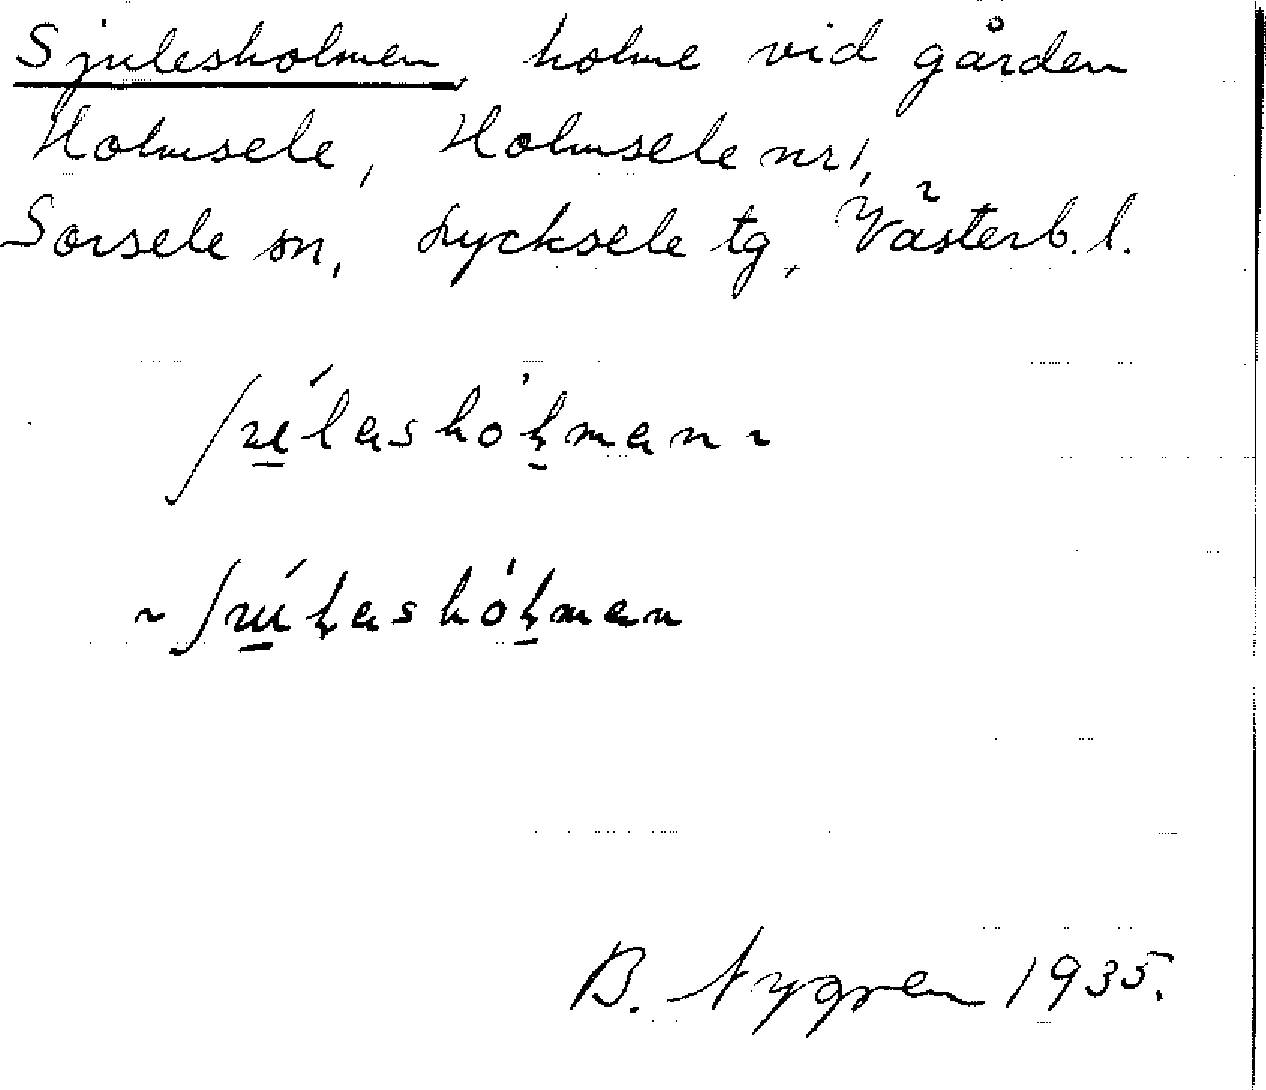 Sjulesholmen, holme vid gården
Holmsele, Holmsele nr 1,
Sorsele sn, Lycksele tg, Västerb. l.
ʃʉ̱́lashòḻman ~
~ ʃʉ̱́ɽashòɽ̱man
B. Nygren 1935.